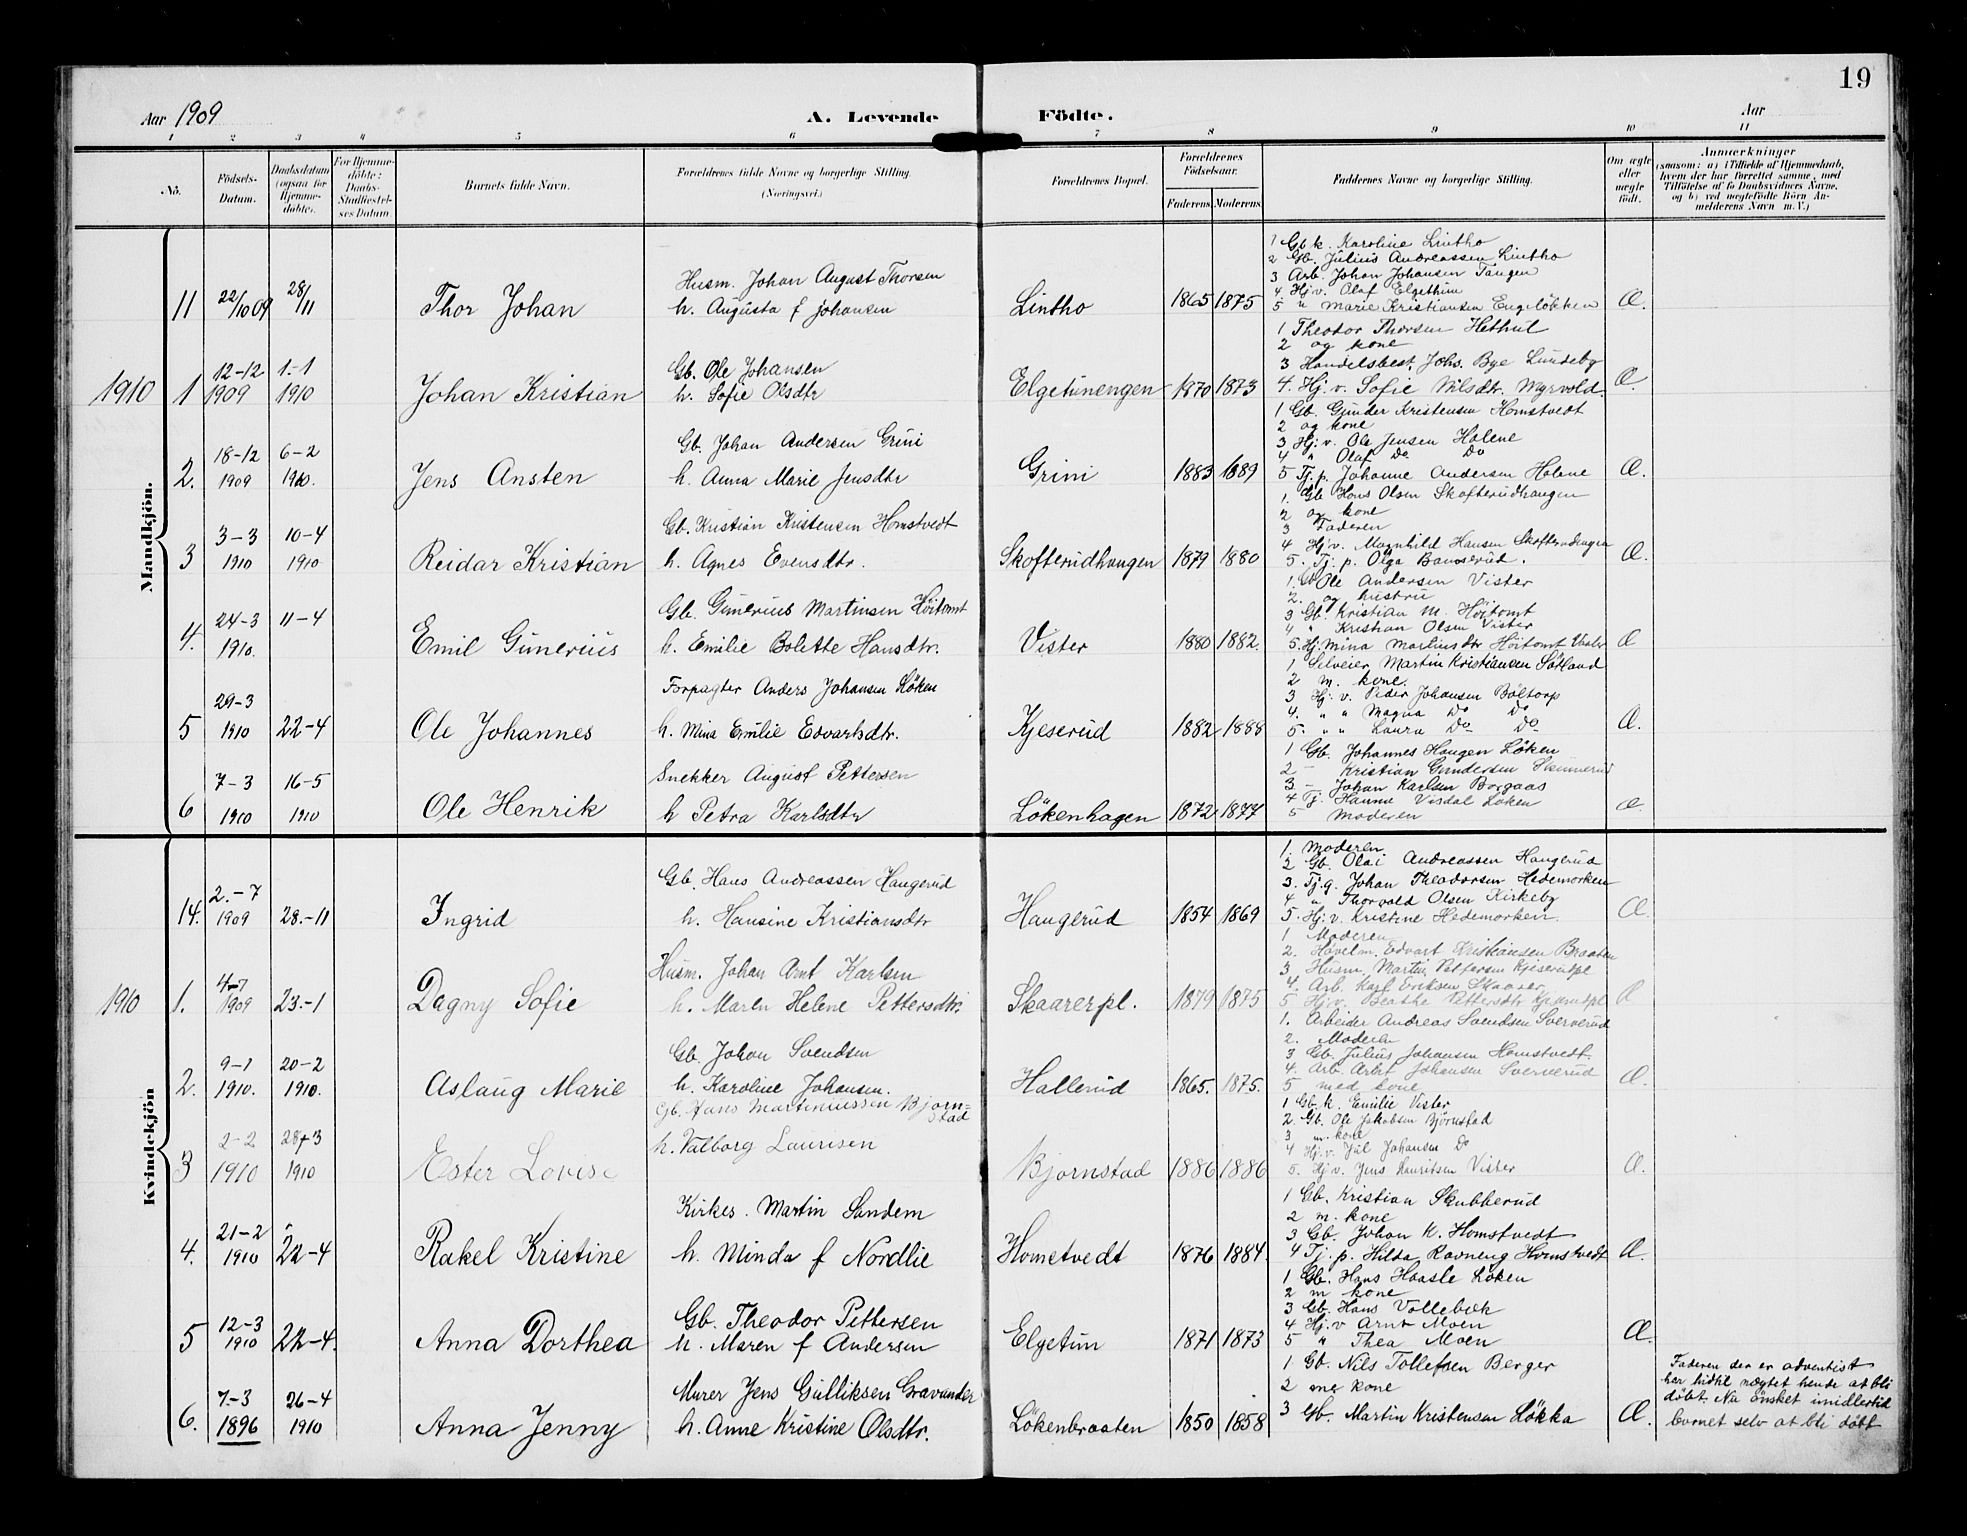 19
Aar 1909
A. Levende Födte.
Aar
1 2 3 4 5 6 7 8 9 10 11
No.
Födsels-Datum.
Daabsdatum (ogsaa for Hjemmedöbte).
For Hjemmedöbte: Daabs-Stadfæstelses Datum
Barnets fulde Navn.
Forældrenes fulde Navne og borgerlige Stilling. (Næringsvei.)
Forældrenes Bopæl.
Forældrenes Födselsaar.
Faderens Moderens
Faddernes Navne og borgerlige Stilling.
Om ægte eller uægte födt.
Anmærkninger
(saasom: a) i Tilfælde af Hjemmedaab, hvem der har forrettet samme, med Tilföielse af to Daabsvidners Navne, og b) ved uægtefödte Börn Anmelderens Navn m. V.)
Mandkjön.
11 22/10 09 28/11 Thor Johan
Husm. Johan August Thorsen
h. Augusta f Johansen
Lintho 1865 1875
1 Gb k. Karoline Lintho
2 Gb. Julius Andreassen Lintho
3 Arb. Johan Johansen Tangen
4. Hj v. Olaf Elgethun
5 " Marie Kristiansen Engeløkken
Æ.
1910 1 12-12 1909 1.-1 1910 Johan Kristian
Gb. Ole Johansen
h. Sofie Olsdtr
Elgetunengen 1870 1873
1 Theodor Thorsen Hethul
2 og kone
3 Handelsbest. Johs. Bye Lundeby
4. Hj. v. Sofie Nilsdtr. Myrvold.
Æ.
2. 18-12 1909 6-2 1910. Jens Ansten
Gb. Johan Andersen Grini
h. Anna Marie Jensdtr
Grini 1883 1889
1 Gb. Gunder Kristensen Homstvedt
2 og kone
3 Hj. v. Ole Jensen Holene
4 " Olaf Do Do
5 Tj. p. Johanne Andersen Holene
Æ.
3 3-3 1910 10-4 1910 Reidar Kristian
Gb. Kristian Kristensen Homstvedt
h. Agnes Evensdtr.
Skofterudhaugen 1879 1880
1. Gb Hans Olsen Skofterudhaugen
2 og kone
3 Faderen
4 Hj v. Magnhild Hansen Skofterudhaugen
5. Tj. p. Olga Banserud.
Æ.
4. 24-3 1910. 11-4 Emil Gunerius
Gb. Gunerius Martinsen Höitomt
h. Emilie Bolette Hansdtr.
Vister 1880 1882.
1. Gb Ole Andersen Vister
2. og hustru
3 Gb. Kristian M. Höitomt
4 " Kristian Olsen Vister
5. Hj. Mina Martinsdtr Höitomt Vaaler
Æ
5 29-3 1910 22-4 Ole Johannes
Forpagter Anders Johansen Löken
h. Mina Emilie Edvartsdtr.
Kjeserud 1882 1888
1 Selveier Martin Kristiansen Sötland
2 m. kone.
3 Hj. v. Peder Johansen Böltorp
4. " " Magna Do Do
5. " " Laura Do Do
Æ.
6 7-3 1910 16-5 1910 Ole Henrik
Snekker August Pettersen
h Petra Karlsdtr
Lökenhagen 1872 1877
1 Gb. Johannes Haugen Löken
2 - Kristian Gundersen
3 - Johan Karlsen Borgaas
4 Tj. Hanna Visdal Løken
5 Moderen
Æ
Kvindekjön
14. 2.-7 1909 28.-11 Ingrid
Gb. Hans Andreassen Haugerud
h. Hansine Kristiansdtr
Haugerud 1854 1869
1. Moderen.
2 Gb. Olai Andreassen Haugerud
3. Tj.g. Johan Theodorsen Hedemorken
4 " Thorvald Olsen Kirkeby
5. Hj. v. Kristine Hedemorken.
Æ.
1910 1. 4-7 1909 23.-1 Dagny Sofie
Husm. Johan Arnt Karlsen
h. Maren Helene Pettersdtr.
Skaarerpl. 1879 1875
1 Moderen
2. Havelm. Edvart Kristiansen Braaten
3 Husm. Martin Pettersen Kjeserudpl
4. Arb. Karl Eriksen Skaarer
5 Hj.v. Beathe Pettersdtr Kjeserudpl
Æ
2. 9-1 1910. 20-2 1910. Aslaug Marie
Gb. Johan Svendsen
h. Karoline Johansen.
Hallerud 1865. 1875.
1. Arbeider Andreas Svendsen Sververud
2. Moderen
3 Gb. Julius Johansen Homstvedt.
4. Arb. Arnt Johansen Sververud
5 med kone
Æ.
3 2-2 1910 28-3 1910 Ester Lovise
Gb. Hans Martiniussen Bjørnstad
h. Valborg Laurisen
Bjørnstad 1886 1886
1 Gb. k. Emilie Vister
2. Gb. Ole Jakobsen Bjørnstad
3 m. kone
4 Hj. v. Jul Johansen Do
5. Hj v. Jens Lauritsen Vister
Æ.
4. 21-2 1910 22-4 Rakel Kristine
Kirkes. Martin Sandem
h. Minda f Nordlie
Homstvedt 1876 1884.
1 Gb. Kristian Skubberud
2 m. kone
3 Gb. Johan K. Homstvedt
4 Tj. p. Hilda Ravneng Homstvedt
Æ.
5 12-3 1910 22-4. Anna Dorthea
Gb. Theodor Pettersen
h. Maren f Andersen
Elgetun 1871 1873
1 Gb. Hans Haasle Löken
2 m kone
3 Gb. Hans Vollebæk
4 Hj. v Arnt Moen
5 " Thea Moen
Æ.
6. 7.-3 1896 26-4 1910 Anna Jenny
Murer Jens Gulliksen Gravander
h. Anne Kristine Olsdtr.
Lökenbraaten 1850 1858
1 Gb. Nils Tollefsen Berger
2 me kone
3 Gb. Martin Kristensen Lökka
Æ.
Faderen der er adventist
har hidtil nægtet hende at bli
döbt. Nu önsket imidlertid
barnet selv at bli döbt